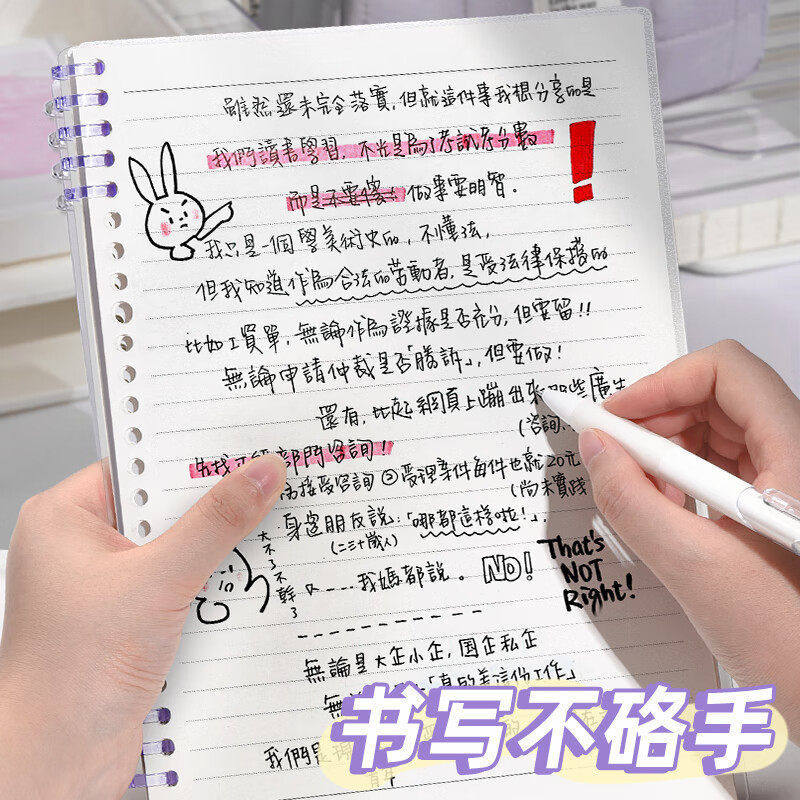 雖然還未完全落實,但就這件事我想分享的是
我們讀書學習,不光是為了考試考分數
而是不要懂 做事要明智。
我只是一個學美術史的,不懂法,
但我知道作為合法的勞動者,是受法律保護的
比如工資單,無論作為證據是否充分,但要留!!
無論申請仲裁是否「勝訴」,但要做!
還有,比起網頁上蹦出來那些廣告
(咨詢
先找 部門咨詢!
接受咨詢 ②受理案件每件也就20元
(尚未實踐
身邊朋友說:「哪都這樣啦!」,
(二三十歲人)
大不了不幹了
又……我媽都說。 NO!
That's NOT Right!
無論是大企小企,国企私企
無 「真的差這份工作」
我們是
书写不硌手